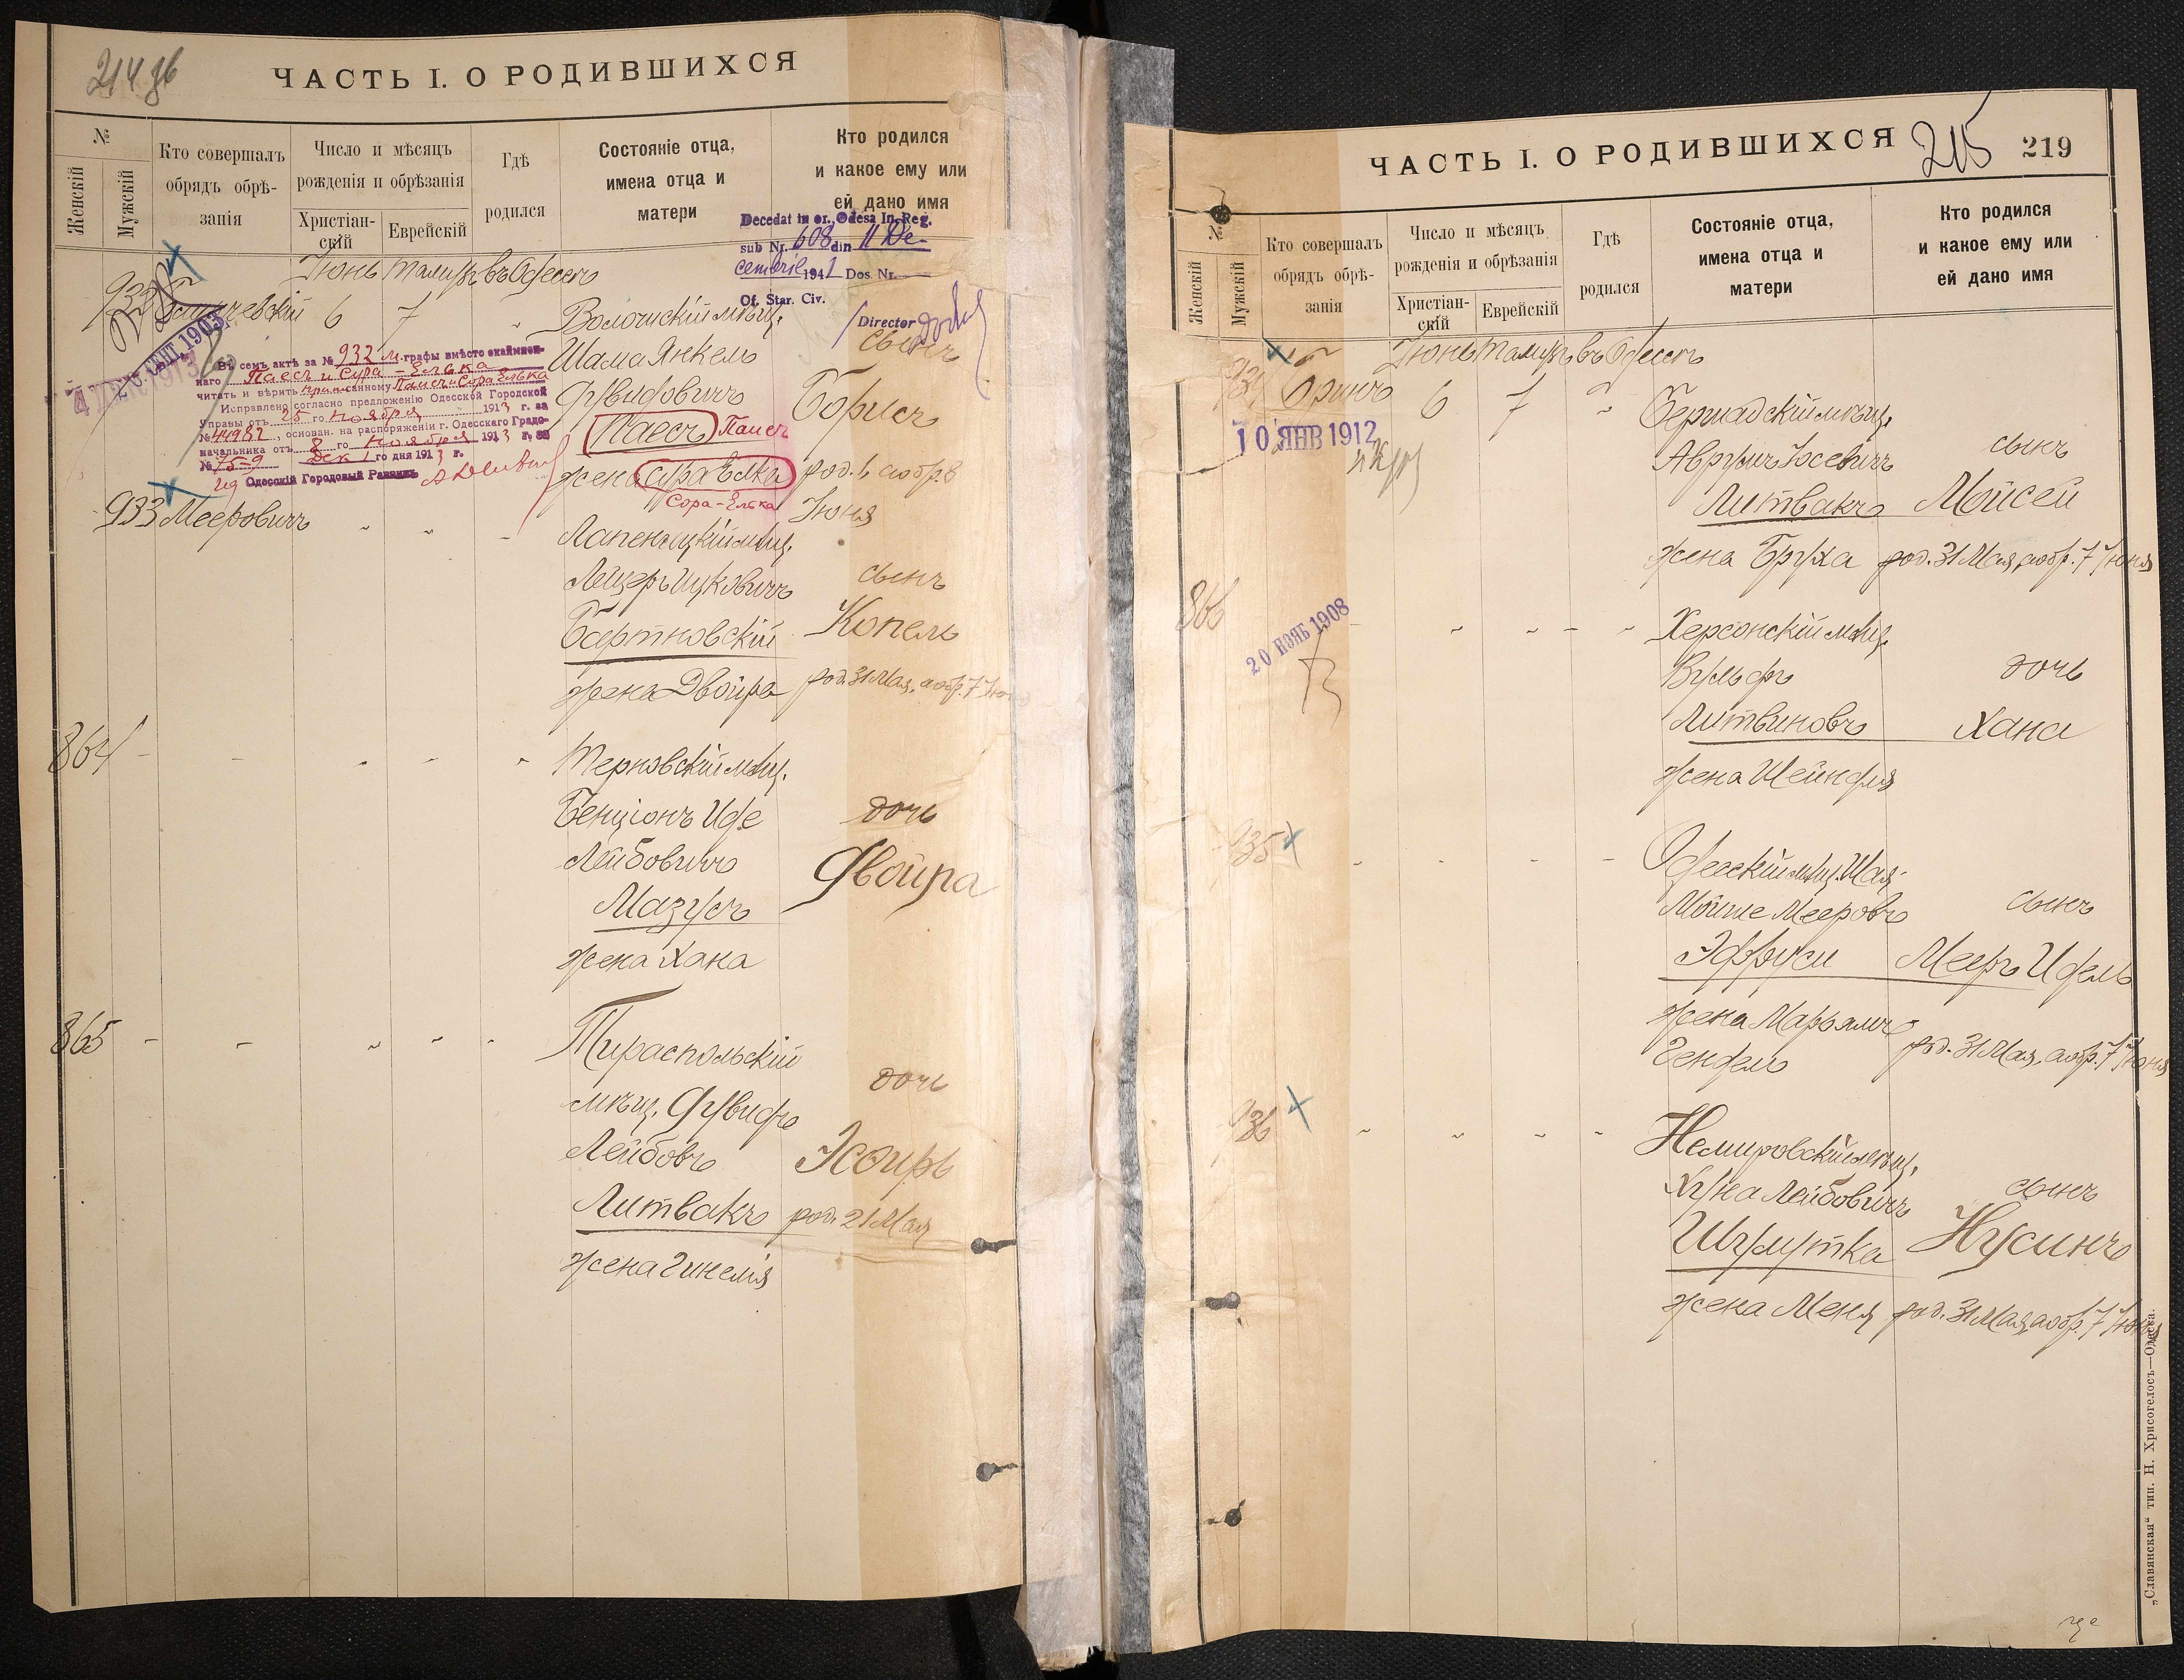 214 об
ЧАСТЬ I. О РОДИВШИХСЯ
№
Женскій
Мужскій
Кто совершалъ
обрядъ обрѣ-
занія
Число и мѣсяцъ
рожденія и обрѣзанія
Христіан-
скій
Еврейскій
Гдѣ
родился
Состояніе отца,
имена отца и
матери
Кто родился
и какое ему или
ей дано имя
Decedat in or. Odesa In. Reg.
sub Nr. 608 din 11 De-
cembrie 1941 Dos. Nr.
Of. Star. Civ.
Director
Іюнь Тамузъ въ Одессѣ
932
6 7
Волочискій мѣщ.
Шама Янкель
Дувидовичъ
Паесъ Паисъ
жена Сура Елка
Сора-Елька
сынъ
Борисъ
род. 1, а обр. 8
Іюня
26 СЕНТ. 1903
Въ семъ актѣ за № 932 м. графы вмѣсто окаймлен-
наго Паесъ и Сура-Елька
читать и вѣрить приписанному Паисъ и Сора Елька
Исправлено согласно предложенію Одесской Городской
Управы отъ 25 го ноября 1913 г. за
№ 44982, основан. на распоряженіи г. Одесскаго Градо-
начальника отъ 8 го ноября 1913 г. за
№ 7559 Дек 1 го дня 1913 г.
Одесскій Городовой Раввинъ
933 Мееровичъ
мѣщ.
Лейзеръ Ицковичъ
Бартновскій
жена Двойра
сынъ
Копель
род. 31 Мая, а обр. 7 Іюн
864
Терновскій мѣщ.
Бенціонъ Иде
Лейбовичъ
Мазусъ
жена Хана
дочь
Двойра
865
Тираспольскій
мѣщ. Дувидъ
Лейбовъ
Литвакъ
жена Гинеля
дочь
Эсѳирь
род. 21 Мая
ЧАСТЬ I. О РОДИВШИХСЯ
215
219
№
Женскій
Мужскій
Кто совершалъ
обрядъ обрѣ-
занія
Число и мѣсяцъ
рожденія и обрѣзанія
Христіан-
скій
Еврейскій
Гдѣ
родился
Состояніе отца,
имена отца и
матери
Кто родился
и какое ему или
ей дано имя
Іюнь Тамузъ въ Одессѣ
934 Бринъ 6 7
10 ЯНВ 1912
Бершадскій мѣщ.
Аврумъ Іосевичъ
Литвакъ
жена Бруха
сынъ
Мойсей
род. 31 Мая, а обр. 7 Іюня
866
20 НОЯБ 1908
Херсонскій мѣщ.
Вульфъ
Литвиновъ
жена Шейндля
дочь
Хана
935
Одесскій мѣщ. Шая
Мойше Мееровъ
Эфруси
жена Марьямъ
Гендель
сынъ
Мееръ Идель
род. 31 Мая, а обр. 7 Іюня
936
Немировскій мѣщ.
Хуна Лейбовичъ
Шумутка
жена Меня
сынъ
Нусинъ
род. 31 Мая, а обр. 7 Іюня
„Славянская“ тип. Н. Хрисогелосъ—Одесса.